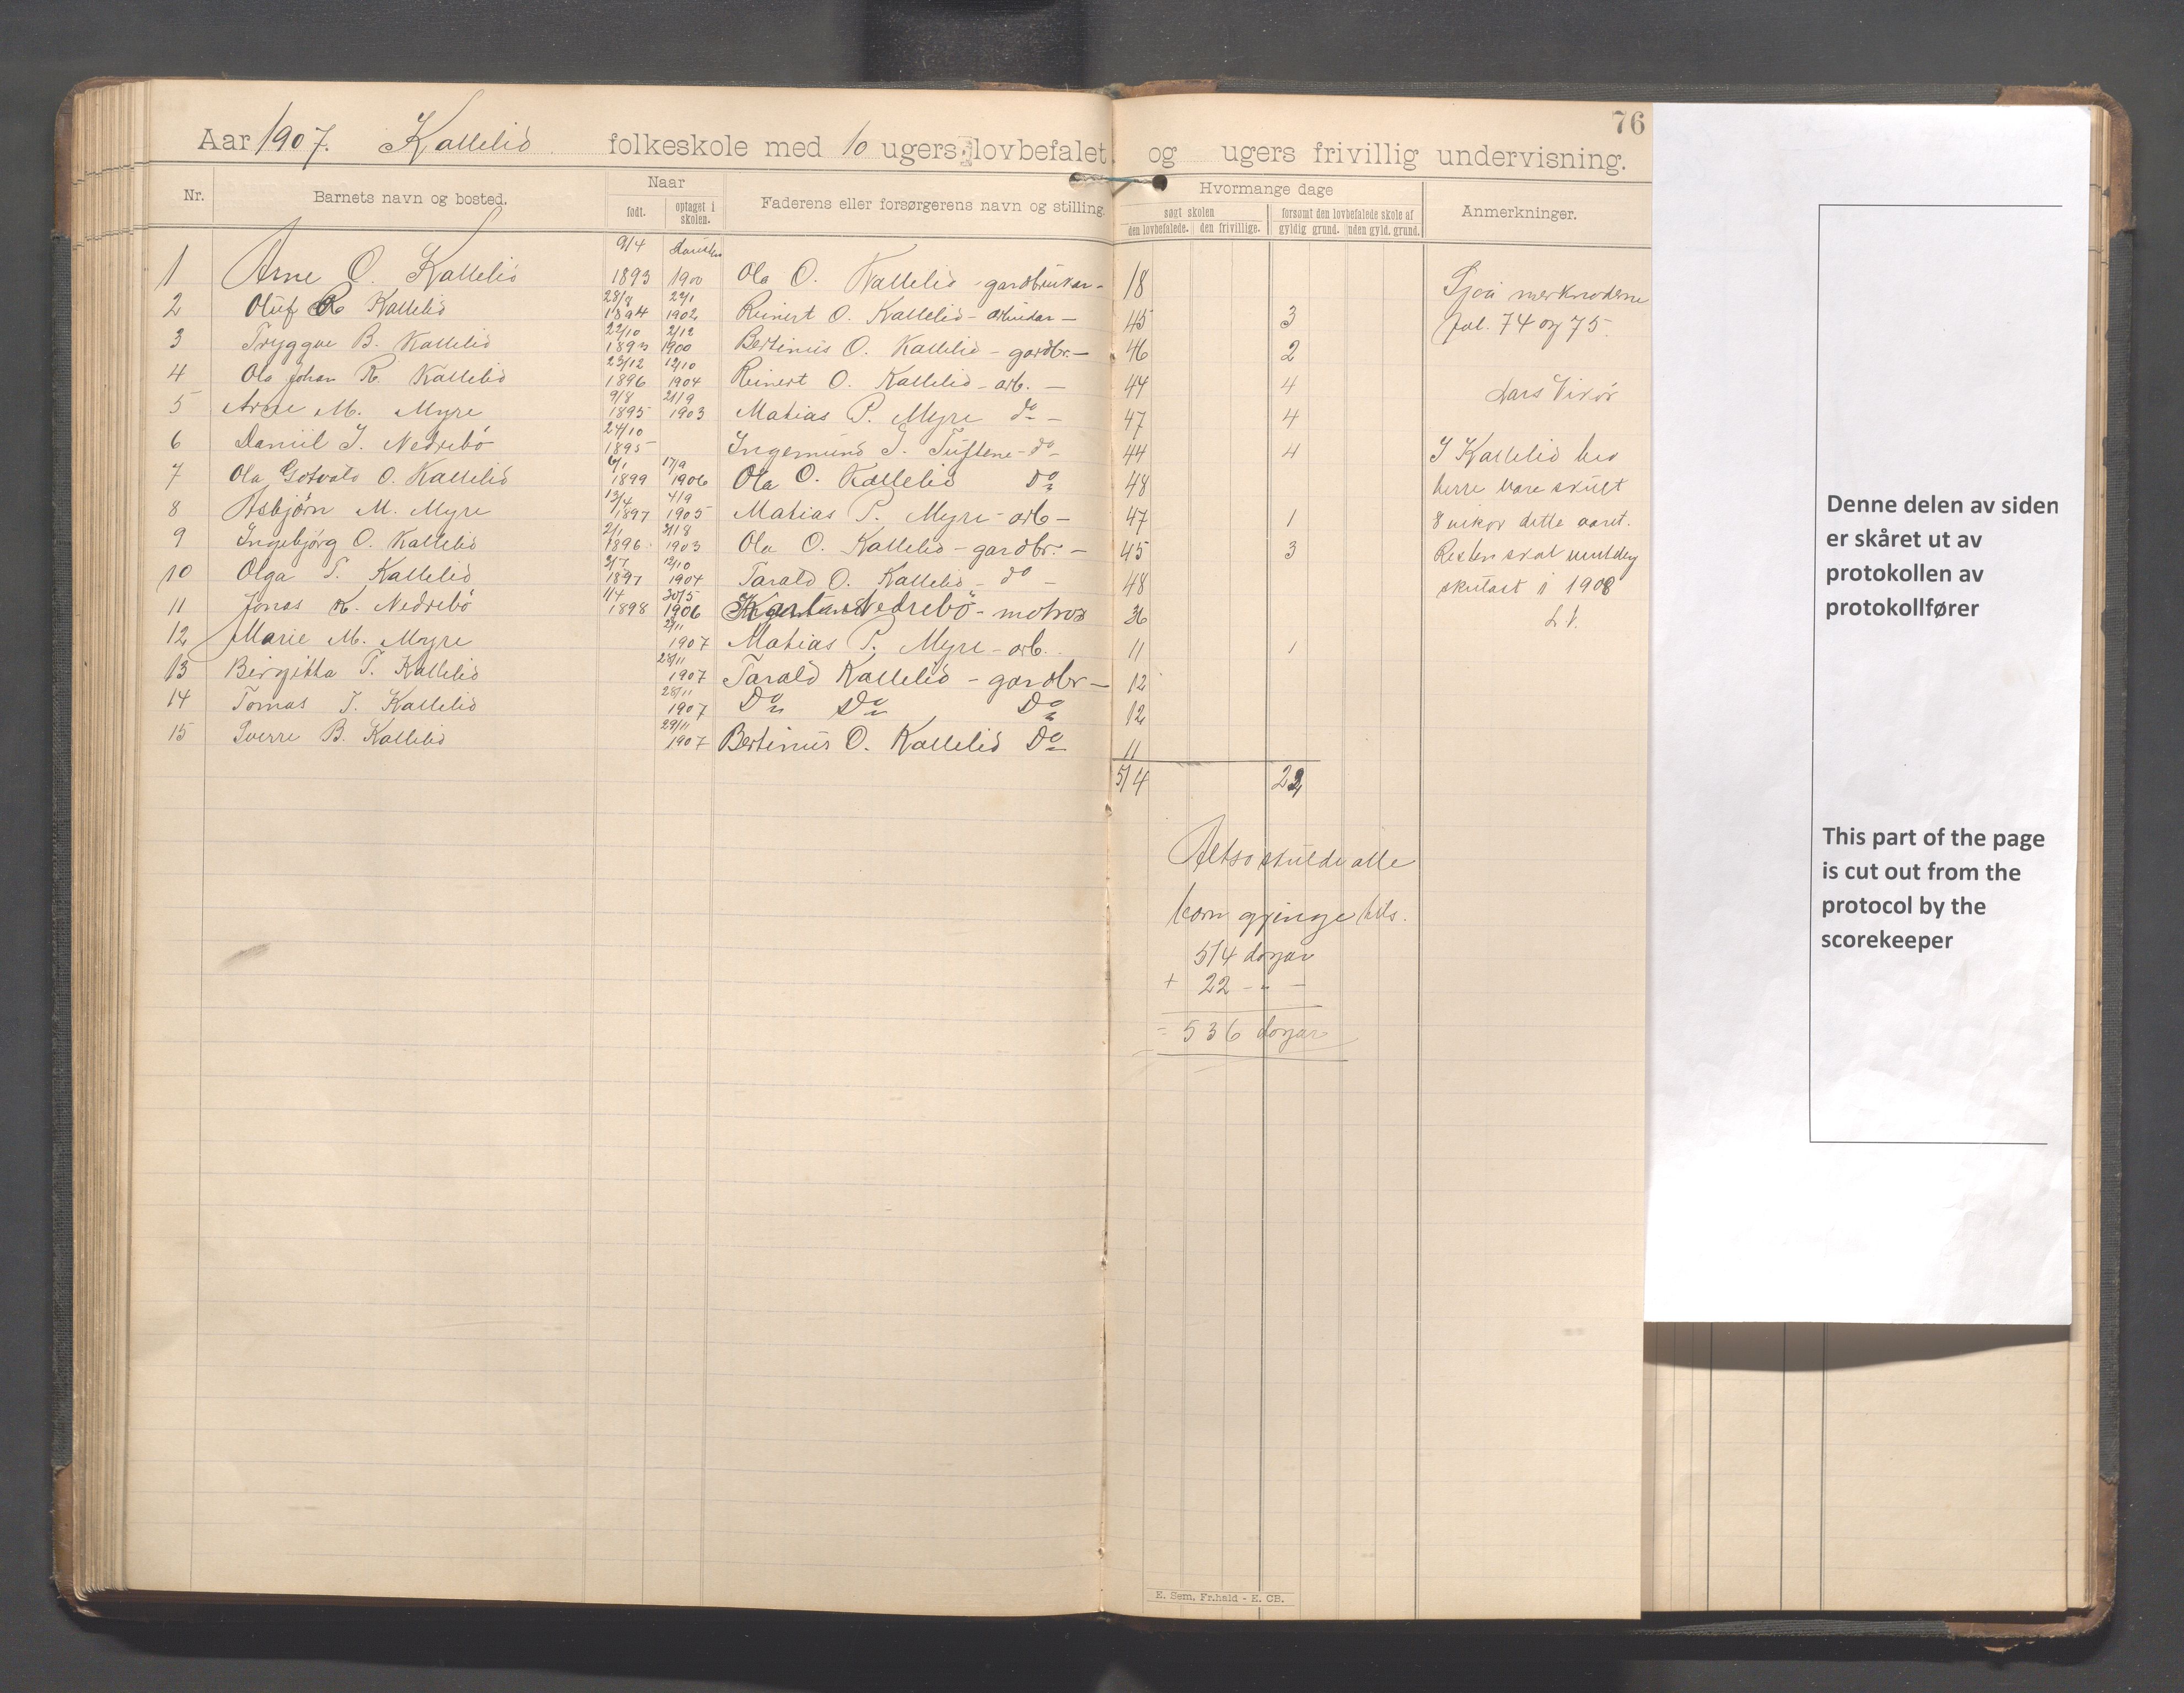 76
Aar 1907. Kallelid folkeskole med 10 ugers lovbefalet og ugers frivillig undervisning.
Nr. Barnets navn og bosted. Naar født. optaget i skolen. Faderens eller forsørgerens navn og stilling. Hvormange dage søgt skolen den lovbefalede. den frivillige. forsømt den lovbefalede skole af gyldig grund. uden gyld. grund. Anmerkninger.
1 Arne O. Kallelid 9/4 1893 1900 Ola O. Kallelid - gardbrukar - 18
2 Oluf R Kallelid 28/8 1894 22/1 1902 Reinert O. Kallelid - arbeidar - 45 3
3 Tryggve B. Kallelid 22/10 1893 2/12 1900 Bertinius O. Kallelid - gardbr. - 46 2
4 Ola Johan R. Kallelid 23/12 1896 12/10 1904 Reinert O. Kallelid - arb. - 44 4
5 Arne M. Myre 9/8 1895 21/9 1903 Matias P. Myre do - 47 4
6 Daniil I. Nedrebö 24/10 1895 Ingemund I. Tuftene - do - 44 4
7 Ola Gotvald O. Kallelid 6/1 1899 17/9 1906 Ola O. Kallelid do 48
8 Asbjörn M. Myre 13/4 1897 4/9 1905 Matias P. Myre - arb - 47 1
9 Ingebjörg O. Kallelid 2/1 1896 21/8 1903 Ola O. Kallelid - gardbr. - 45 3
10 Olga T. Kallelid 3/7 1897 12/10 1904 Tarald O. Kallelid - do - 48
11 Jonas K. Nedrebö 1/4 1898 30/5 1906 Nedrebö - matros 36
12 Marie M. Myre 2/11 1907 Matias P. Myre - arb. 11 1
13 Birgitta T. Kallelid 28/11 1907 Tarald Kallelid - gardbr - 12
14 Tomas T. Kallelid 28/11 1907 Do Do Do 12
15 Sverre B. Kallelid 29/11 1907 Bertinius O. Kallelid Do 11
514 22
Sjaa merknadene
fol. 74 og 75.
Lars Vikör
I Kallelid hev
berre vore skult
8 vikor dette aaret.
Resten skal
skulast i 1908
L V.
Altso skulde alle
born gjinge hels.
514 dagar
+ 22 - " -
= 536 dagar
E. Sem, Fr.hald - E. CB.
Denne delen av siden
er skåret ut av
protokollen av
protokollfører
This part of the page
is cut out from the
protocol by the
scorekeeper